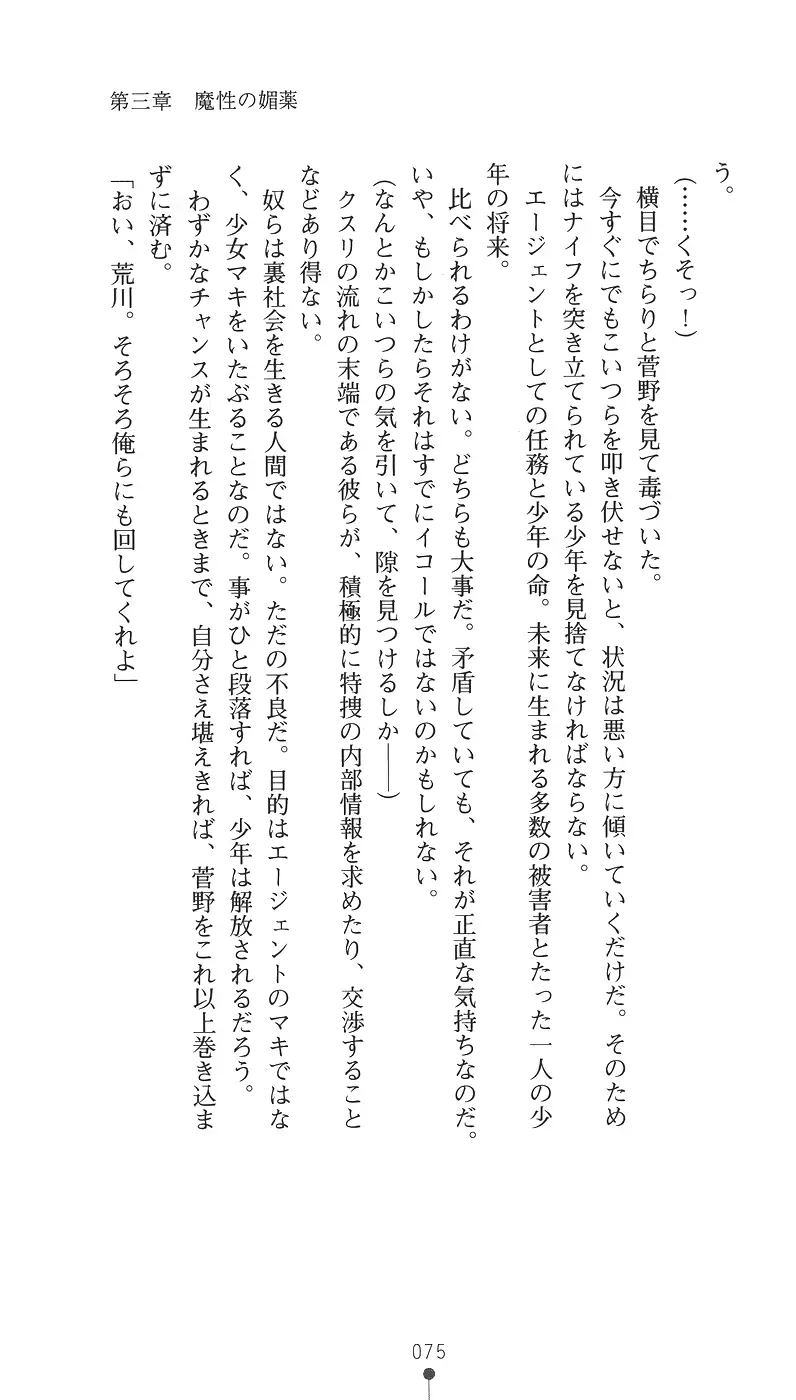 第三章　魔性の媚薬
う。
（……くそっ！）
　横目でちらりと菅野を見て毒づいた。
　今すぐにでもこいつらを叩き伏せないと、状況は悪い方に傾いていくだけだ。そのため
にはナイフを突き立てられている少年を見捨てなければならない。
　エージェントとしての任務と少年の命。未来に生まれる多数の被害者とたった一人の少
年の将来。
　比べられるわけがない。どちらも大事だ。矛盾していても、それが正直な気持ちなのだ。
いや、もしかしたらそれはすでにイコールではないのかもしれない。
（なんとかこいつらの気を引いて、隙を見つけるしか――）
　クスリの流れの末端である彼らが、積極的に特捜の内部情報を求めたり、交渉すること
などあり得ない。
　奴らは裏社会を生きる人間ではない。ただの不良だ。目的はエージェントのマキではな
く、少女マキをいたぶることなのだ。事がひと段落すれば、少年は解放されるだろう。
　わずかなチャンスが生まれるときまで、自分さえ堪えきれば、菅野をこれ以上巻き込ま
ずに済む。
「おい、荒川。そろそろ俺らにも回してくれよ」
075